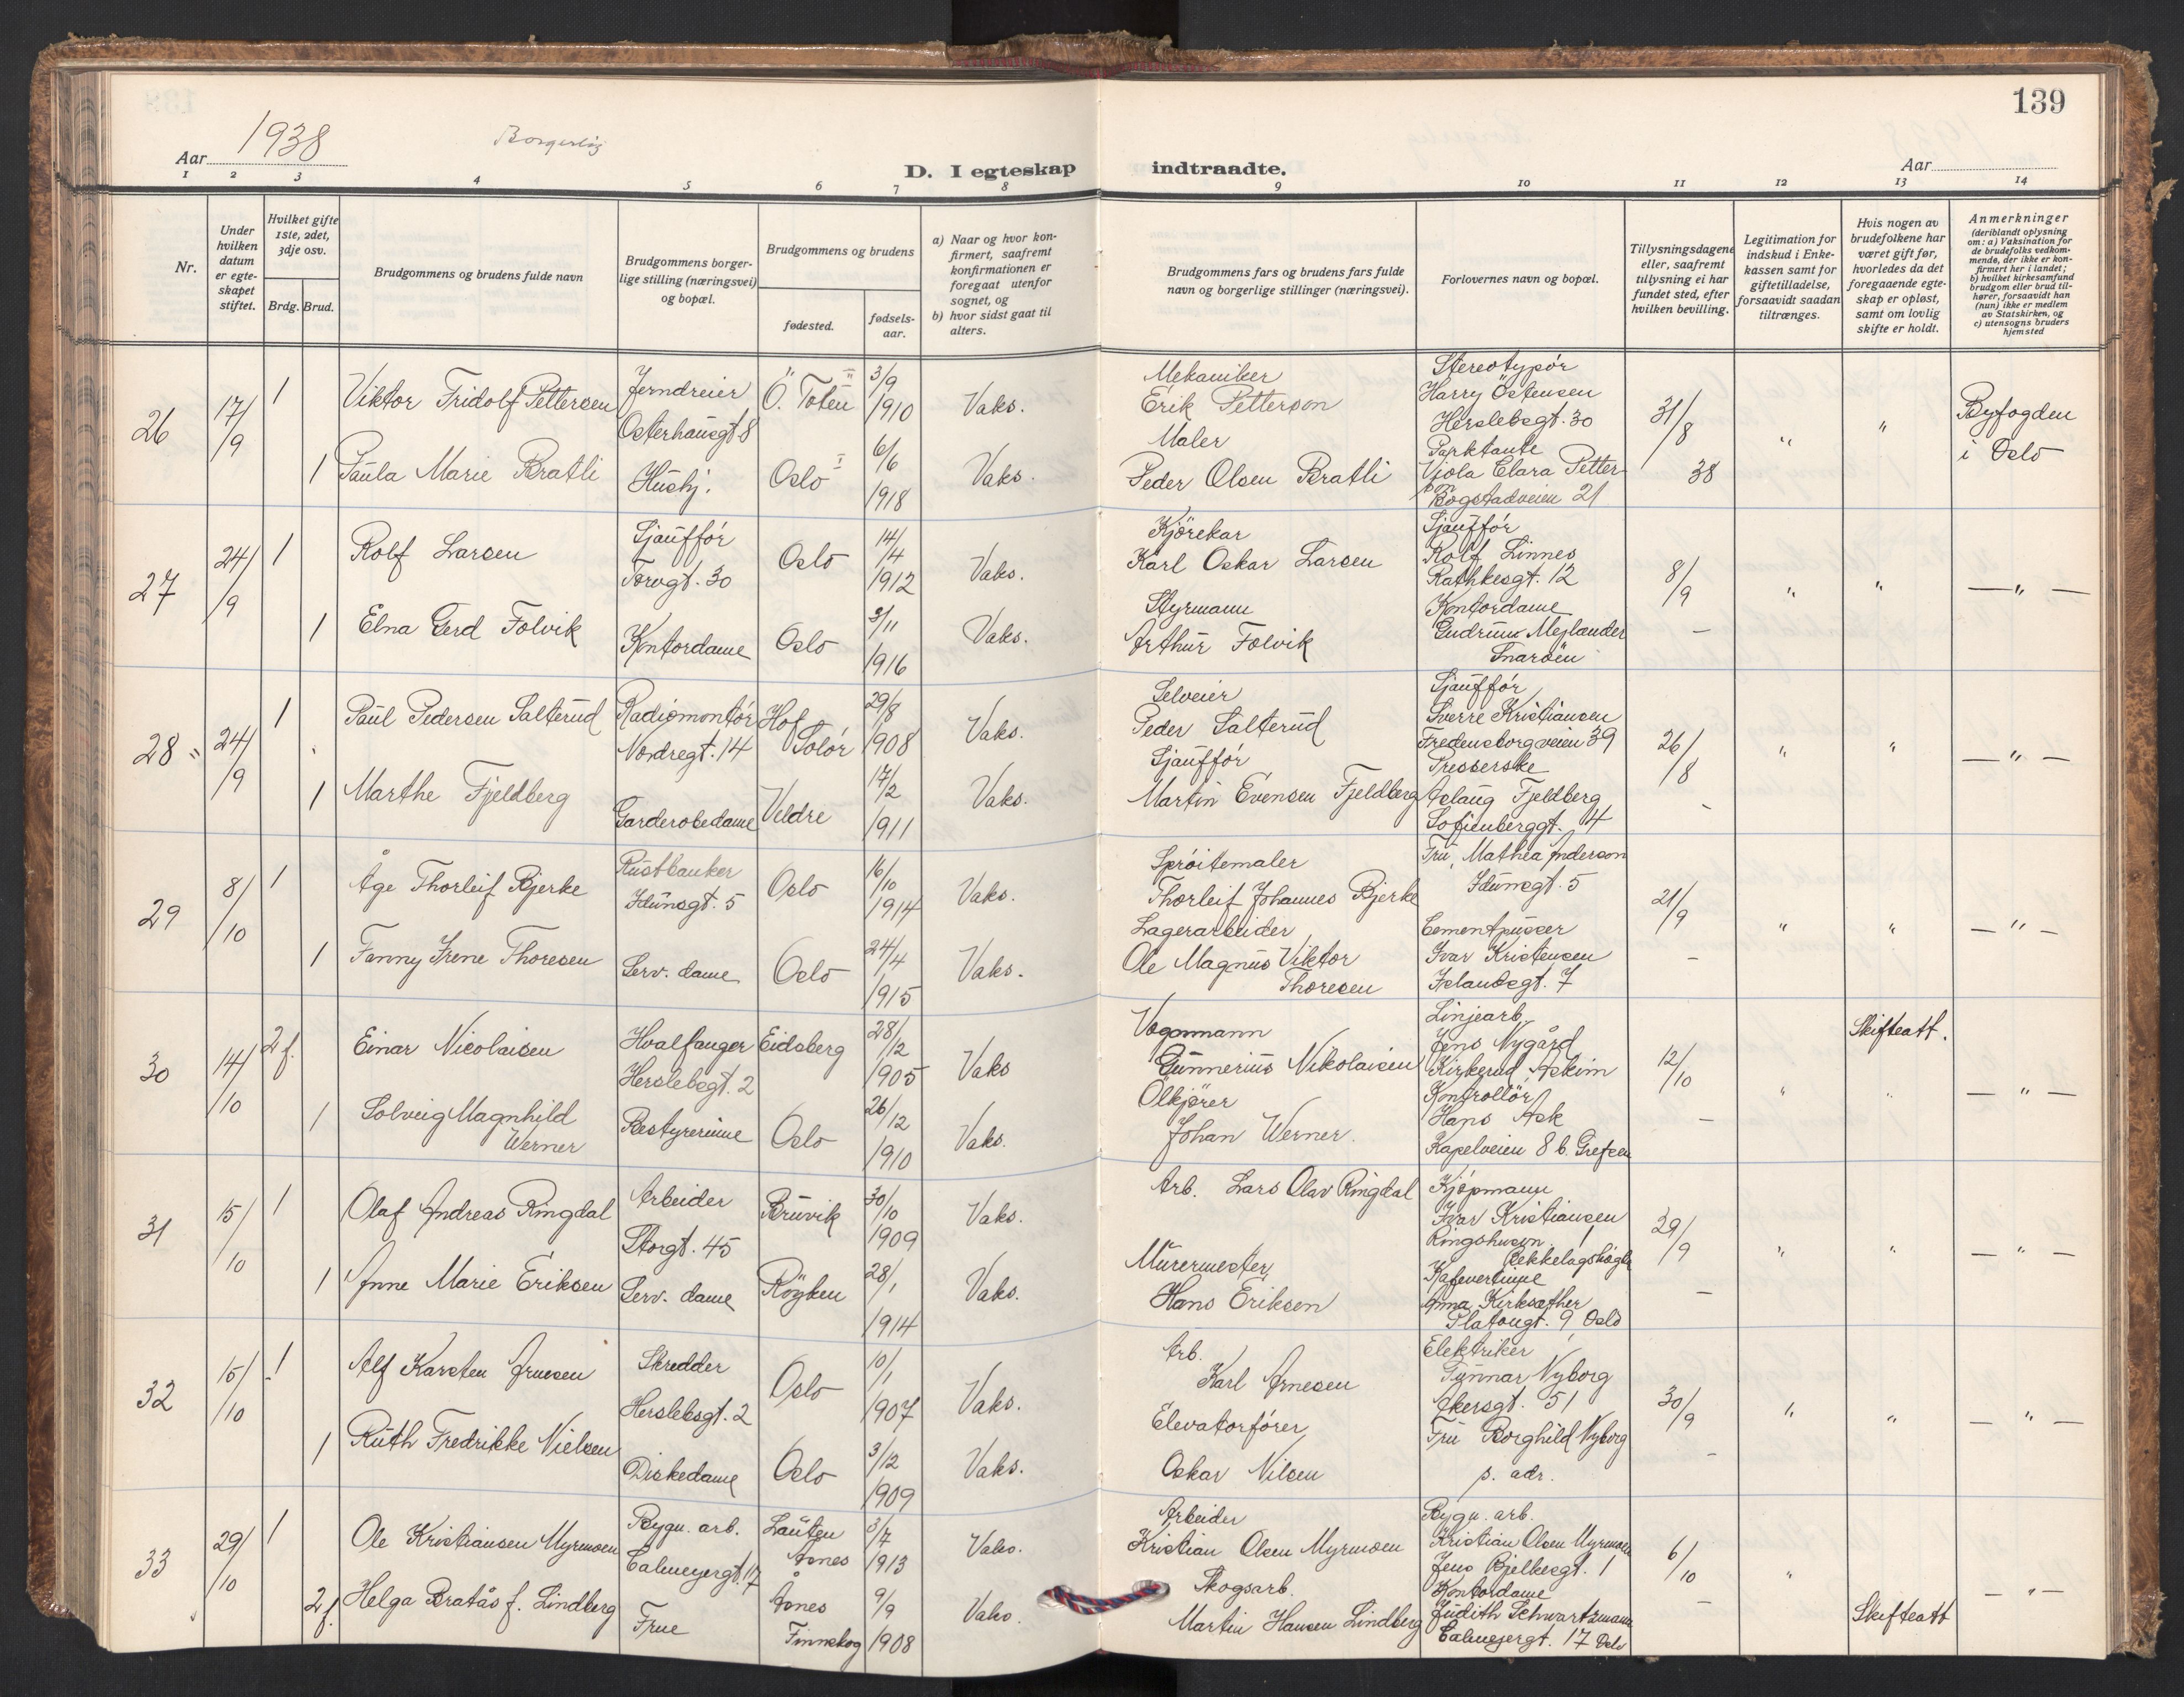 139
Aar 1938
Borgerlig
D. I egteskap indtraadte.
Aar
1 2 3 4 5 6 7 8 9 10 11 12 13 14
Nr.
Under hvilken datum er egteskapet stiftet.
Hvilket gifte 1ste, 2det, 3dje osv.
Brdg. Brud.
Brudgommens og brudens fulde navn
Brudgommens borgerlige stilling (næringsvei) og bopæl.
Brudgommens og brudens
fødested.
fødselsaar.
a) Naar og hvor konfirmert, saafremt konfirmationen er foregaat utenfor sognet, og
b) hvor sidst gaat til alters.
Brudgommens fars og brudens fars fulde navn og borgerlige stillinger (næringsvei).
Forlovernes navn og bopæl.
Tillysningsdagene eller, saafremt tillysning ei har fundet sted, efter hvilken bevilling.
Legitimation for indskud i Enkekassen samt for giftetilladelse, forsaavidt saadan tiltrænges.
Hvis nogen av brudefolkene har været gift før, hvorledes da det foregaaende egteskap er opløst, samt om lovlig skifte er holdt.
Anmerkninger (deriblandt oplysning om: a) Vaksination for de brudefolks vedkommende, der ikke er konfirmert her i landet; b) hvilket kirkesamfund brudgom eller brud tilhører, forsaavidt han (hun) ikke er medlem av Statskirken, og c) utensogns bruders hjemsted
26 17/9 1 Viktor Fridolf Pettersen Jerndreier Osterhausgt 8 Ö. Toten 3/9 1910 Vaks. Mekaniker Erik Petterson Stereotypör Harry Östensen Herslebsgt. 30 31/8 38 " " Byfogden i Oslo
1 Paula Marie Bratli Hushj. Oslo 6/6 1918 Vaks. Maler Peder Olsen Bratli Parktante Vjola Clara Petterson Bogstadveien 21
27 24/9 1 Rolf Larsen Sjauffór Torvgt. 30 Oslo 14/4 1912 Vaks. Kjörekar Karl Oskar Larsen Sjauffór Rolf Linnes Rathkesgt. 12 8/9 - " " — " —
1 Elna Gerd Folvik Kontordame Oslo 3/11 1916 Vaks. Styrmann Arthur Folvik Kontordame Gudrun Mejlænder Snaröen
28 24/9 1 Paul Pedersen Salterud Radiomontör Nordregt. 14 Hof Solör 29/8 1908 Vaks. Selveier Peder Salterud Sjauffór Sverre Kristiansen Fredensborgveien 39 26/8 - " " — " —
1 Marthe Fjeldberg Garderobedame Veldre 17/2 1911 Vaks. Sjauffór Martin Evensen Fjeldberg Presserske Aslaug Fjeldberg Sofienberggt. 4
29 8/10 1 Åge Thorleif Bjerke Rustbanker Idunsgt. 5 Oslo 16/10 1914 Vaks. Spröitemaler Thorleif Johannes Bjerke Fru Mathea Anderson Idunsgt. 5 21/9 - " " — " —
1 Fanny Irene Thoresen Serv. dame Oslo 24/4 1915 Vaks. Lagerarbeider Ole Magnus Viktor Thoresen Cementpusser Ivar Kristensen Islandsgt. 7
30 14/10 2 f. Einar Nicolaisen Hvalfanger Herslebsgt. 2 Eidsberg 28/12 1905 Vaks Vognmann Gunnerius Nikolaisen Linjearb. Jens Nygård Kirkerud Askim 12/10 - " " Skifteatt. — " —
1 Solveig Magnhild Werner Bestyrerinne Oslo 26/12 1910 Vaks. Ölkjörer Johan Werner. Kontrollör Hans Ask Kapelveien 8 b. Grefsen
31 15/10 1 Olaf Andreas Ringdal Arbeider Storgt. 45 Bruvik 30/10 1909 Vaks. Arb. Lars Olav Ringdal Kjöpmann Ivar Kristiansen Ringshusen 1 Bekkelagshögda 29/9 - " " — " —
1 Anne Marie Eriksen Serv. dame Röyken 28/1 1914 Vaks. Murermester Hans Eriksen Kafevertinne Anna Kirksæther Platougt. 9 Oslo
32 15/10 1 Alf Karsten Arnesen Skredder Herslebsgt. 2 Oslo 10/1 1907 Vaks. Arb. Karl Arnesen Elektriker Gunnar Nyborg Akersgt. 51 30/9 - " " — " —
1 Ruth Fredrikke Nielsen Diskedame Oslo 3/12 1909 Vaks. Elevatorförer Oskar Nilsen Fru Borghild Nyborg s. adr.
33 29/10 1 Ole Kristiansen Myrmoen Bygn. arb. Calmeyergt. 17 Lauten Åsnes 3/7 1913 Vaks. Arbeider Kristian Olsen Myrmoen Bygn. arb. Kristian Olsen Myrmoen Jens Bjelkesgt. 1 6/10 - " — " —
2 f. Helga Bratås f. Lindberg Frue Åsnes Finnskog 9/9 1908 Vaks. Skogsarb. Martin Hansen Lindberg Kontordame Judith Schwartzmann Calmeyergt. 17 Oslo Skifteatt